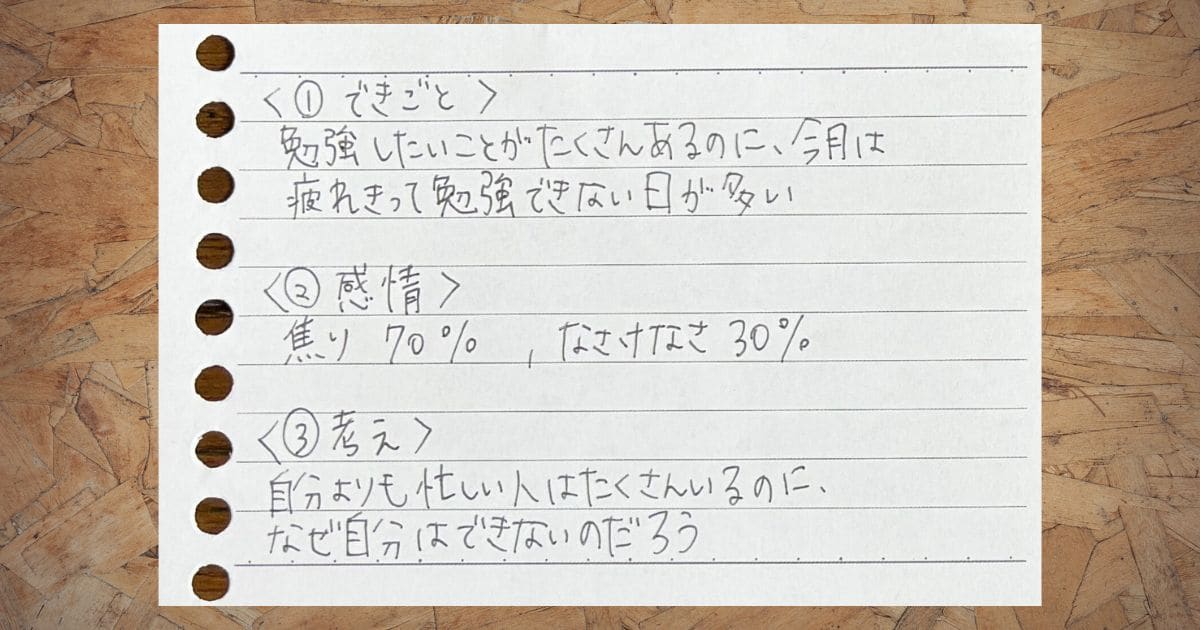 〈① できごと〉
勉強したいことがたくさんあるのに、今月は
疲れきって勉強できない日が多い
〈② 感情〉
焦り 70% , なさけなさ 30%
〈③ 考え〉
自分よりも忙しい人はたくさんいるのに、
なぜ自分はできないのだろう